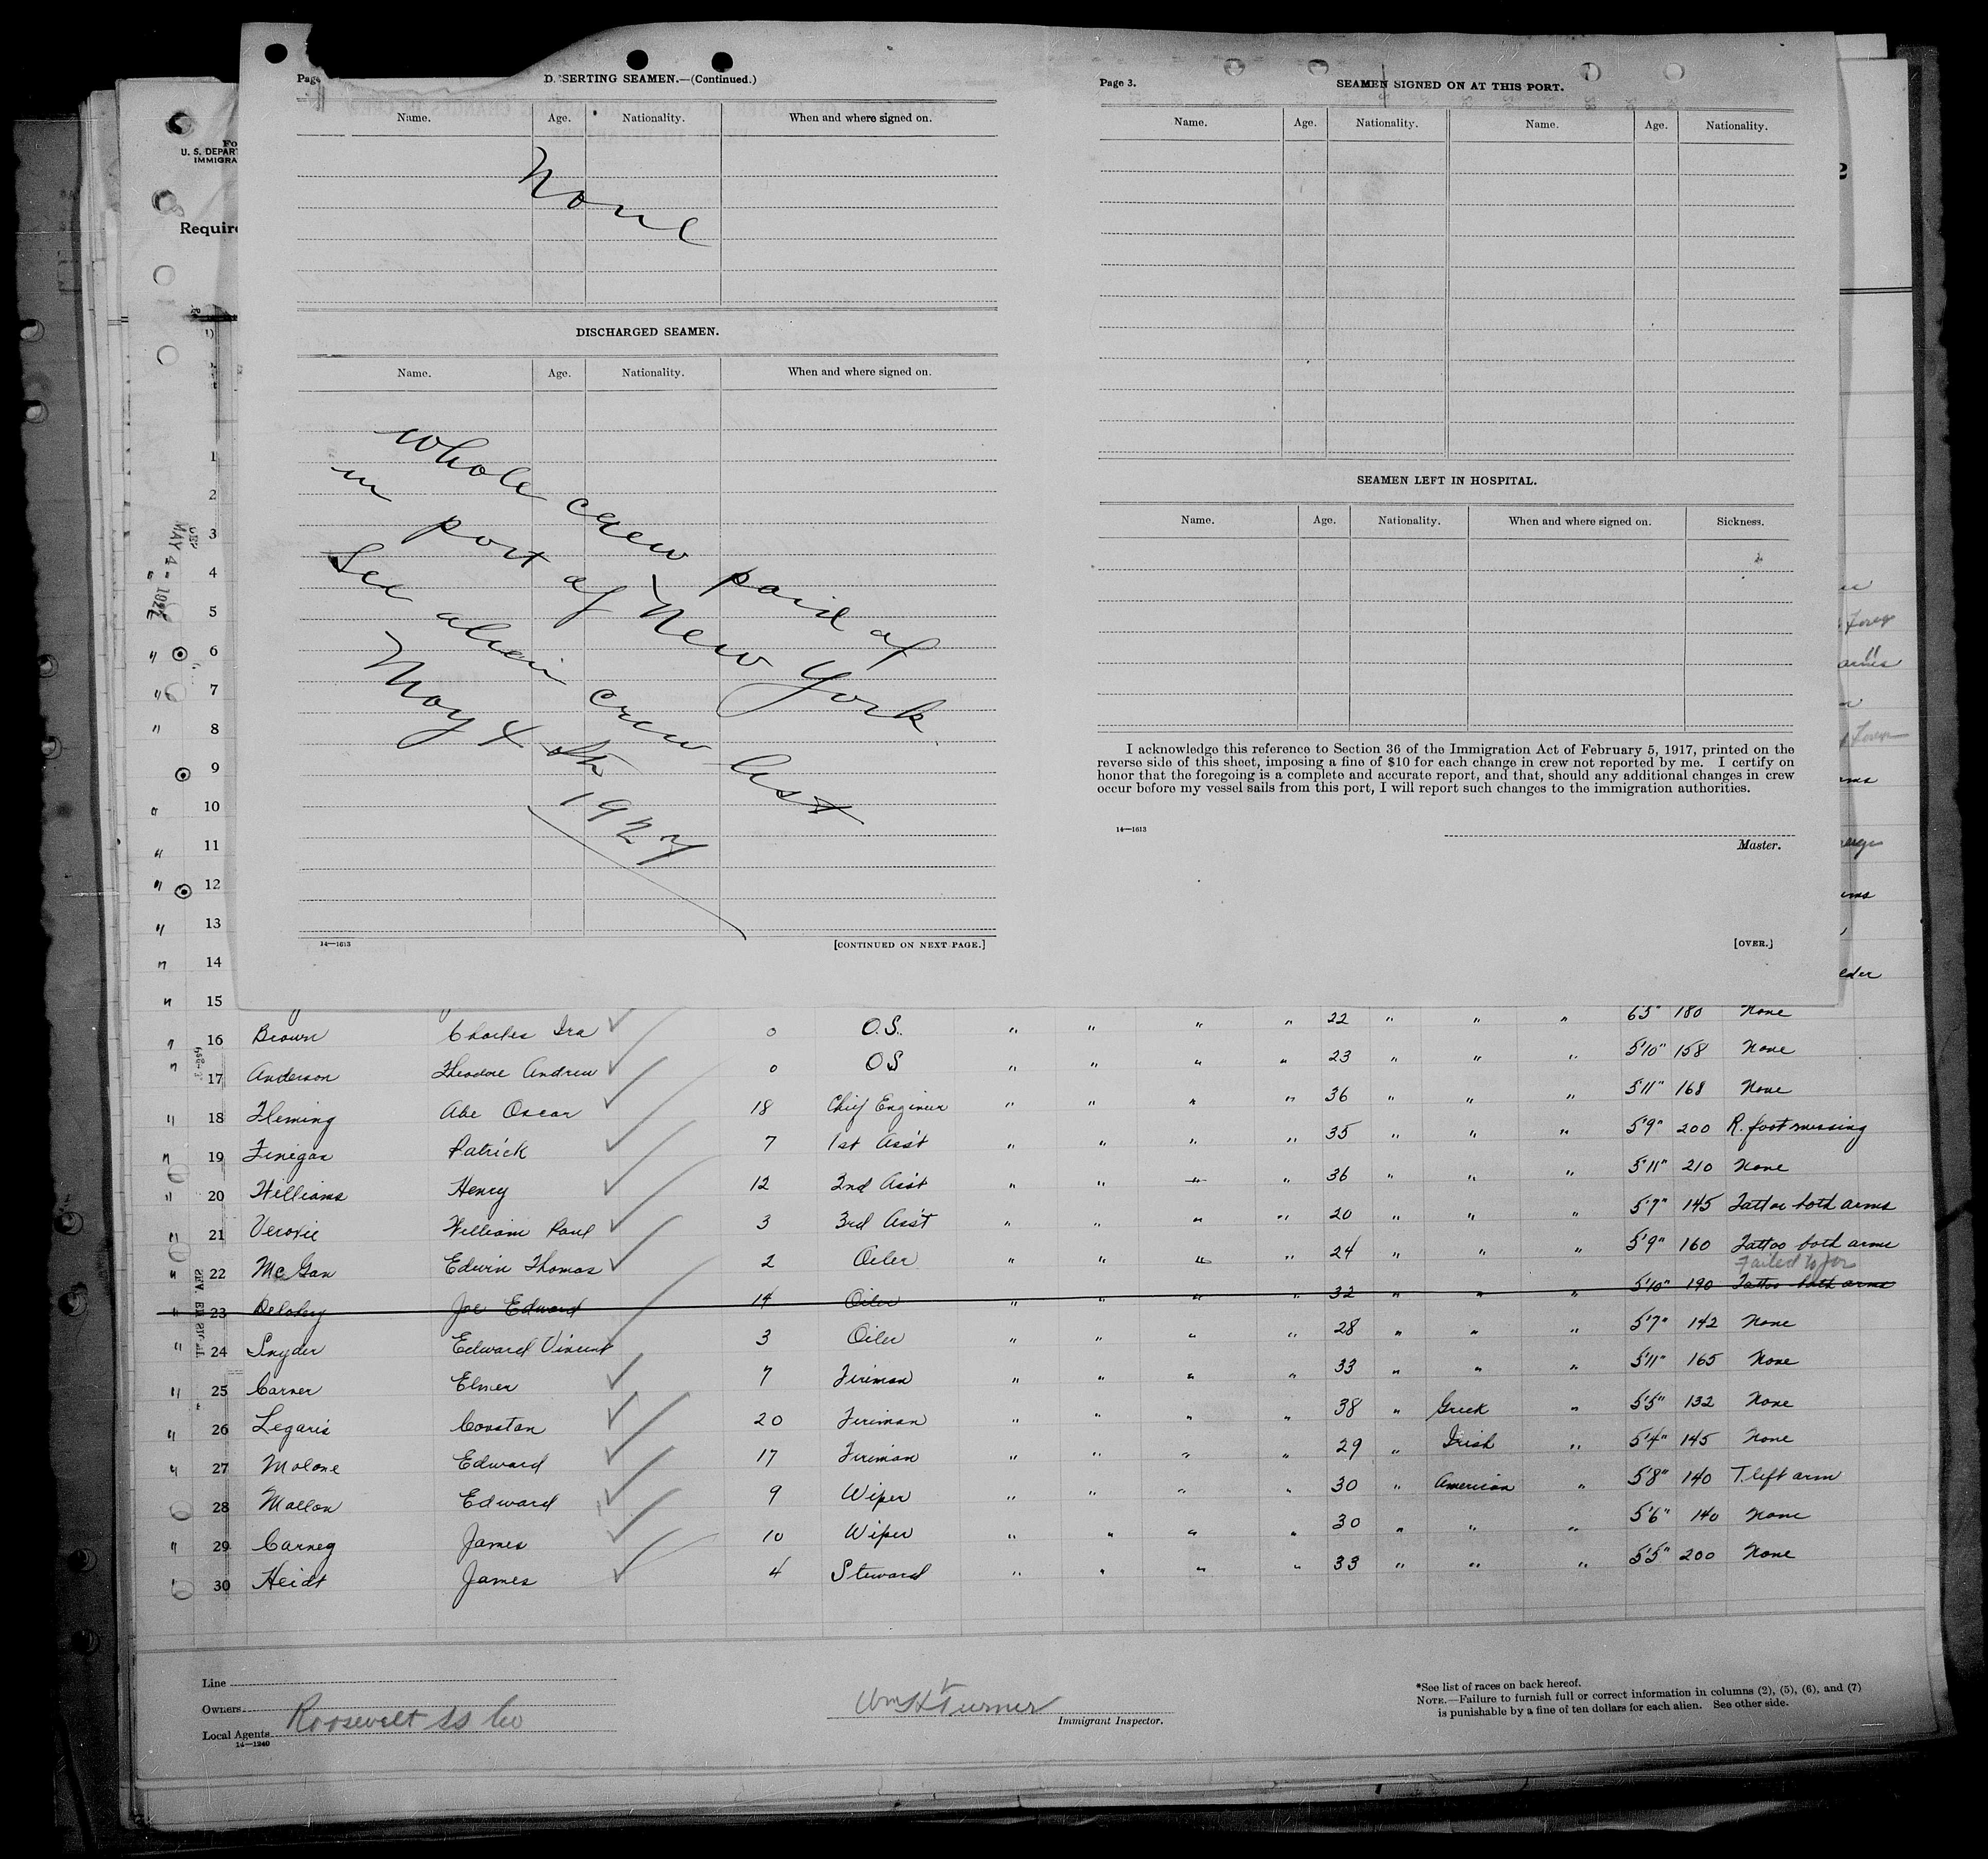 Page
D.SERTING SEAMEN.—(Continued.)
Name. Age. Nationality. When and where signed on.
None
DISCHARGED SEAMEN.
Name. Age. Nationality. When and where signed on.
whole crew paid of
in port of New York
See alien crew list
May 4 th 1927
14—1613 [CONTINUED ON NEXT PAGE.]
Page 3. SEAMEN SIGNED ON AT THIS PORT.
Name. Age. Nationality. Name. Age. Nationality.
SEAMEN LEFT IN HOSPITAL.
Name. Age. Nationality. When and where signed on. Sickness.
I acknowledge this reference to Section 36 of the Immigration Act of February 5, 1917, printed on the
reverse side of this sheet, imposing a fine of $10 for each change in crew not reported by me. I certify on
honor that the foregoing is a complete and accurate report, and that, should any additional changes in crew
occur before my vessel sails from this port, I will report such changes to the immigration authorities.
14—1613
Master.
[OVER.]
Fo
U. S. DEPAR
IMMIGRA
Require
1
2
3
4
5
6
7
8
9
10
11
12
13
14
15
16 Brown Charles Ira 0 O.S. " " " " 22 " " " 6'3" 180 None
17 Anderson Theodore Andrew 0 OS " " " " 23 " " " 5'10" 158 None
18 Fleming Abe Oscar 18 Chief Engineer " " " " 36 " " " 5'11" 168 None
19 Finegan Patrick 7 1st Ass't " " " " 35 " " " 5'9" 200 R. foot missing
20 Williams Henry 12 2nd Ass't " " " " 36 " " " 5'11" 210 None
21 William Paul 3 3rd Ass't " " " " 20 " " " 5'7" 145 Tattoo both arms
22 McGan Edwin Thomas 2 Oiler " " " " 24 " " " 5'9" 160 Tattoo both arms
Failed to join
23 Joe Edward 14 Oiler " " " " 32 " " " 5'10" 190 Tattoo both arms
24 Snyder Edward Vincent 3 Oiler " " " " 28 " " " 5'7" 142 None
25 Carner Elmer 7 Fireman " " " " 33 " " " 5'11" 165 None
26 Legaris Constan 20 Fireman " " " " 38 " Greek " 5'5" 132 None
27 Malone Edward 17 Fireman " " " " 29 " Irish " 5'4" 145 None
28 Mallon Edward 9 Wiper " " " " 30 " American " 5'8" 140 T. left arm
29 Carneg James 10 Wiper " " " " 30 " " " 5'6" 140 None
30 Heidt James 4 Steward " " " " 33 " " " 5'5" 200 None
Line
Owners
Local Agents Roosevelt SS Co
14—1240
Wm H Turner
Immigrant Inspector.
*See list of races on back hereof.
NOTE.—Failure to furnish full or correct information in columns (2), (5), (6), and (7)
is punishable by a fine of ten dollars for each alien. See other side.